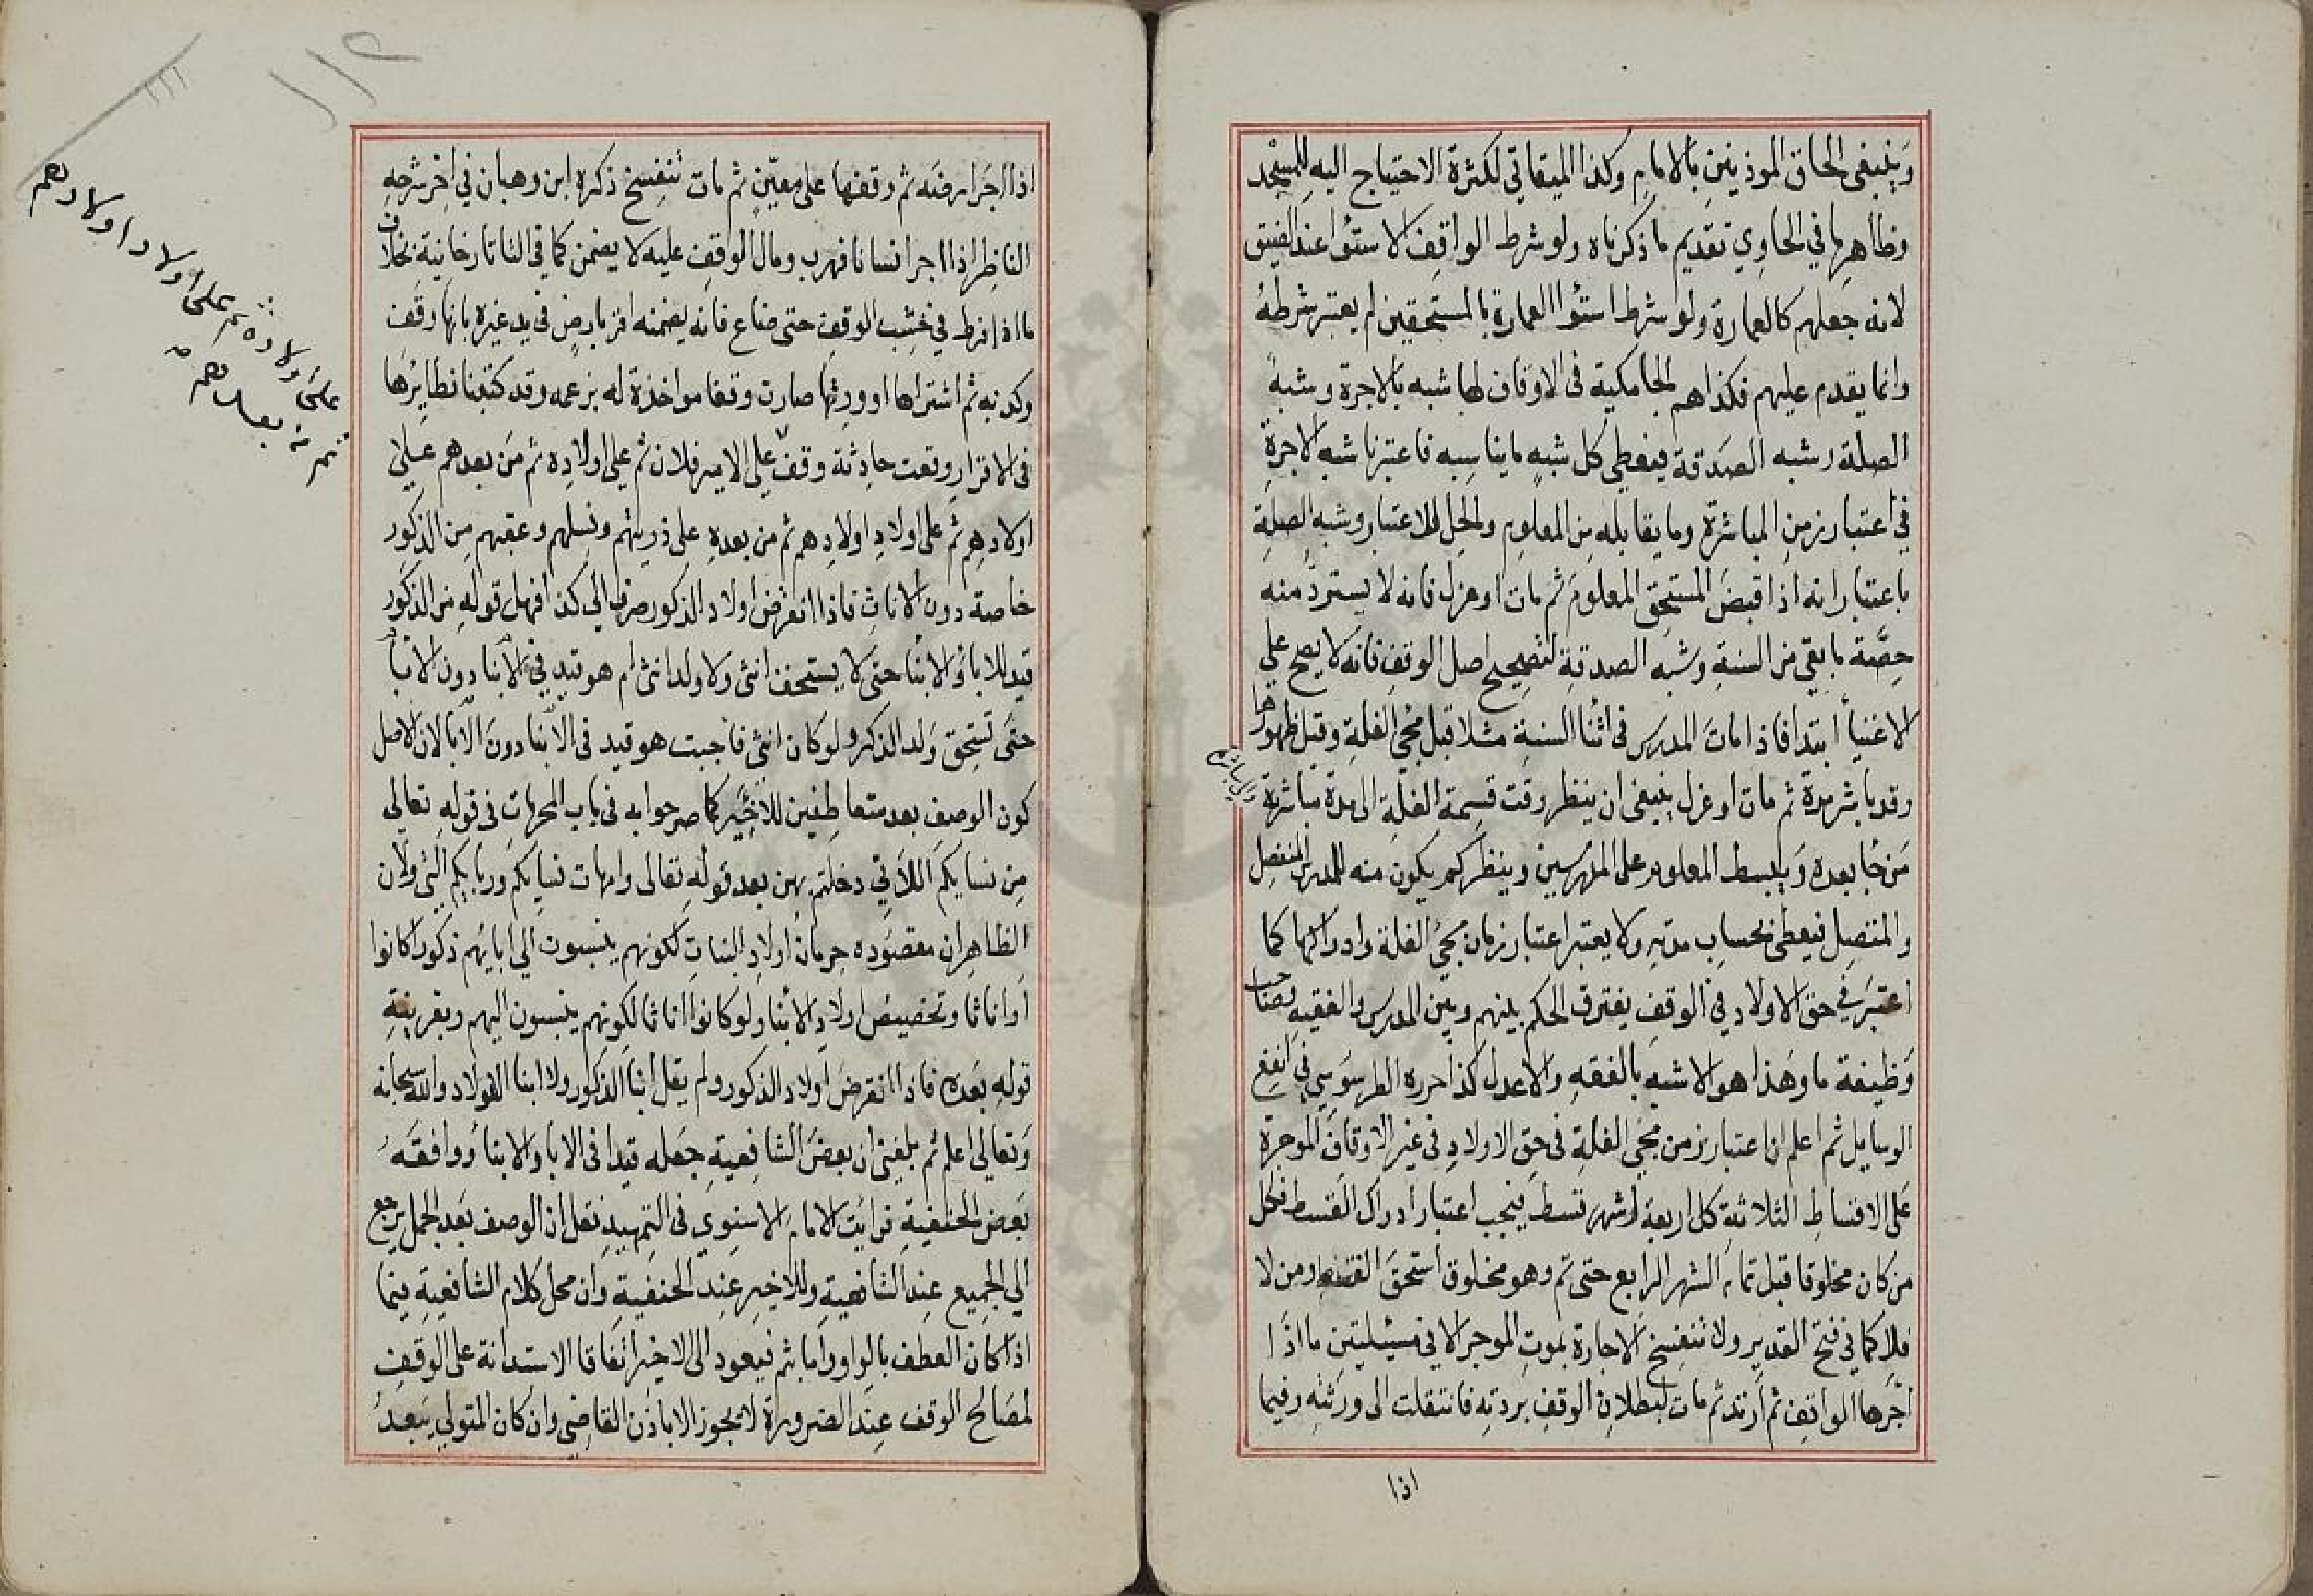 وينبغي الحاق الموذنين بالامام وكذا الميقاتي لكثرة الاحتياج اليه للمسجد
وظاهر ما في الحاوي تقديم ما ذكرناه ولو شرط الواقف الاستوا عند الضيق
لانه جعلهم كالعمارة ولو شرط استوا العمارة بالمستحقين لم يعتبر شرطه
وانما يقدم عليهم فكذا هم الجامكية في الاوقاف لها شبه بالاجرة وشبه
الصلة وشبه الصدقة فيعطي كل شبه ما يناسبه فاعتبرنا شبه الاجرة
في اعتبار زمن المباشرة وما يقابله من المعلوم والحل للاعتبار وشبه الصلة
باعتبار انه اذا قبض المستحق المعلوم ثم مات او عزل فانه لا يسترد منه
حصة ما بقي من السنة وشبه الصدقة لتصحيح اصل الوقف فانه لا يصح علي
الاغنيا ابتدا فاذا مات المدرس في اثنا السنة مثلا قبل مجي الغلة وقبل ظهورها
وقد باشر مدة ثم مات او عزل ينبغي ان ينظر وقت قسمة الغلة الى مدة مباشرة
من جا بعده ويبسط المعلوم على المدرسين وينظر كم يكون منه للمدرس المنفصل
والمتصل فيعطى بحساب مدته ولا يعتبر اعتبار زمان مجي الغلة وادراكها كما
اعتبر في حق الاولاد في الوقف يفترق الحكم بينهم وبين المدرس والفقيه وصاحب
وظيفة ما وهذا هو الاشبه بالفقه والاعدل كذا حرره الطرسوسي في انفع
الوسايل ثم اعلم ان اعتبار زمن مجي الغلة في حق الاولاد في غير الاوقاف الموجرة
على الاقساط الثلاثة كل اربعة اشهر قسط فيجب اعتبار ادراك القسط فكل
من كان مخلوقا قبل تمام الشهر الرابع حتى تم وهو مخلوق استحق القسط ومن لا
فلا كما في فتح القدير ولا تنفسخ الاجارة بموت الموجر الا في مسيلتين ما اذا
اجرها الواقف ثم ارتد ثم مات لبطلان الوقف بردته فانتقلت الى ورثته وفيما
اذا
١١٢
١١١
اذا اجر ارضه ثم وقفها على معين ثم مات تنفسخ ذكره ابن وهبان في اخر شرحه
الناظر اذا اجر انسانا فهرب ومال الوقف عليه لا يضمن كما في التاتارخانية بخلاف
ما اذا فرط في خشب الوقف حتى ضاع فانه يضمنه اقر بارض في يد غيره بانها وقف
وكذبه ثم اشتراها او ورثها صارت وقفا مواخذة له بزعمه وقد كتبنا نظايرها
في الاقرار وقعت حادثة وقف على الامير فلان ثم على اولاده ثم من بعدهم على
اولادهم ثم على اولاد اولادهم ثم من بعده على ذريتهم ونسلهم وعقبهم من الذكور
خاصة دون الاناث فاذا انقرض اولاد الذكور صرف الي كذا فهل قوله من الذكور
قيد للابا والابنا حتى لا يستحق انثى ولا ولد انثى ام هو قيد في الابنا دون الابا
حتى تستحق ولد الذكر ولو كان انثى فاجبت هو قيد في الابنا دون الابا لان الاصل
كون الوصف بعد متعاطفين للاخير كما صرحوا به في باب المحرمات في قوله تعالى
من نسايكم اللاتي دخلتم بهن بعد قوله تعالى وامهات نسايكم وربايبكم التي ولان
الظاهر ان مقصوده حرمان اولاد البنات لكونهم ينسبون الي ابايهم ذكورا كانوا
او اناثا وتخصيص اولاد الابنا ولو كانوا اناثا لكونهم ينسبون اليهم وبقرينة
قوله بعده فاذا انقرض اولاد الذكور ولم يقل ابنا الذكور ولا ابنا الاولاد والله سبحانه
وتعالى اعلم ثم بلغني ان بعض الشافعية جعله قيدا في الابا والابنا ووافقه
بعض الحنفية فرايت الامام الاسنوي في التمهيد نقل ان الوصف بعد الجمل يرجع
الي الجميع عند الشافعية وللاخير عند الحنفية وان محل كلام الشافعية فيما
اذا كان العطف بالواو واما بثم فيعود الى الاخير اتفاقا الاستدانة على الوقف
لمصالح الوقف عند الضرورة لا يجوز الا باذن القاضي وان كان المتولي يبعد
على اولاده ثم على اولاد اولادهم
ثم من بعدهم